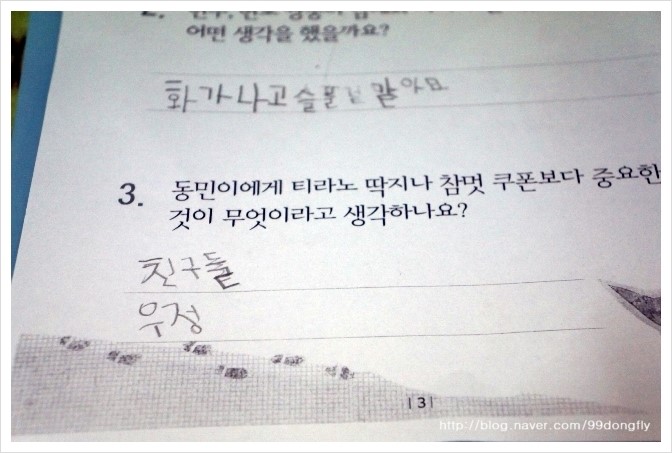 2.
어떤 생각을 했을까요?
화가나고 슬플것 같아요
3. 동민이에게 티라노 딱지나 참멋 쿠폰보다 중요한
것이 무엇이라고 생각하나요?
친구들
우정
|3|
http://blog.naver.com/99dongfly